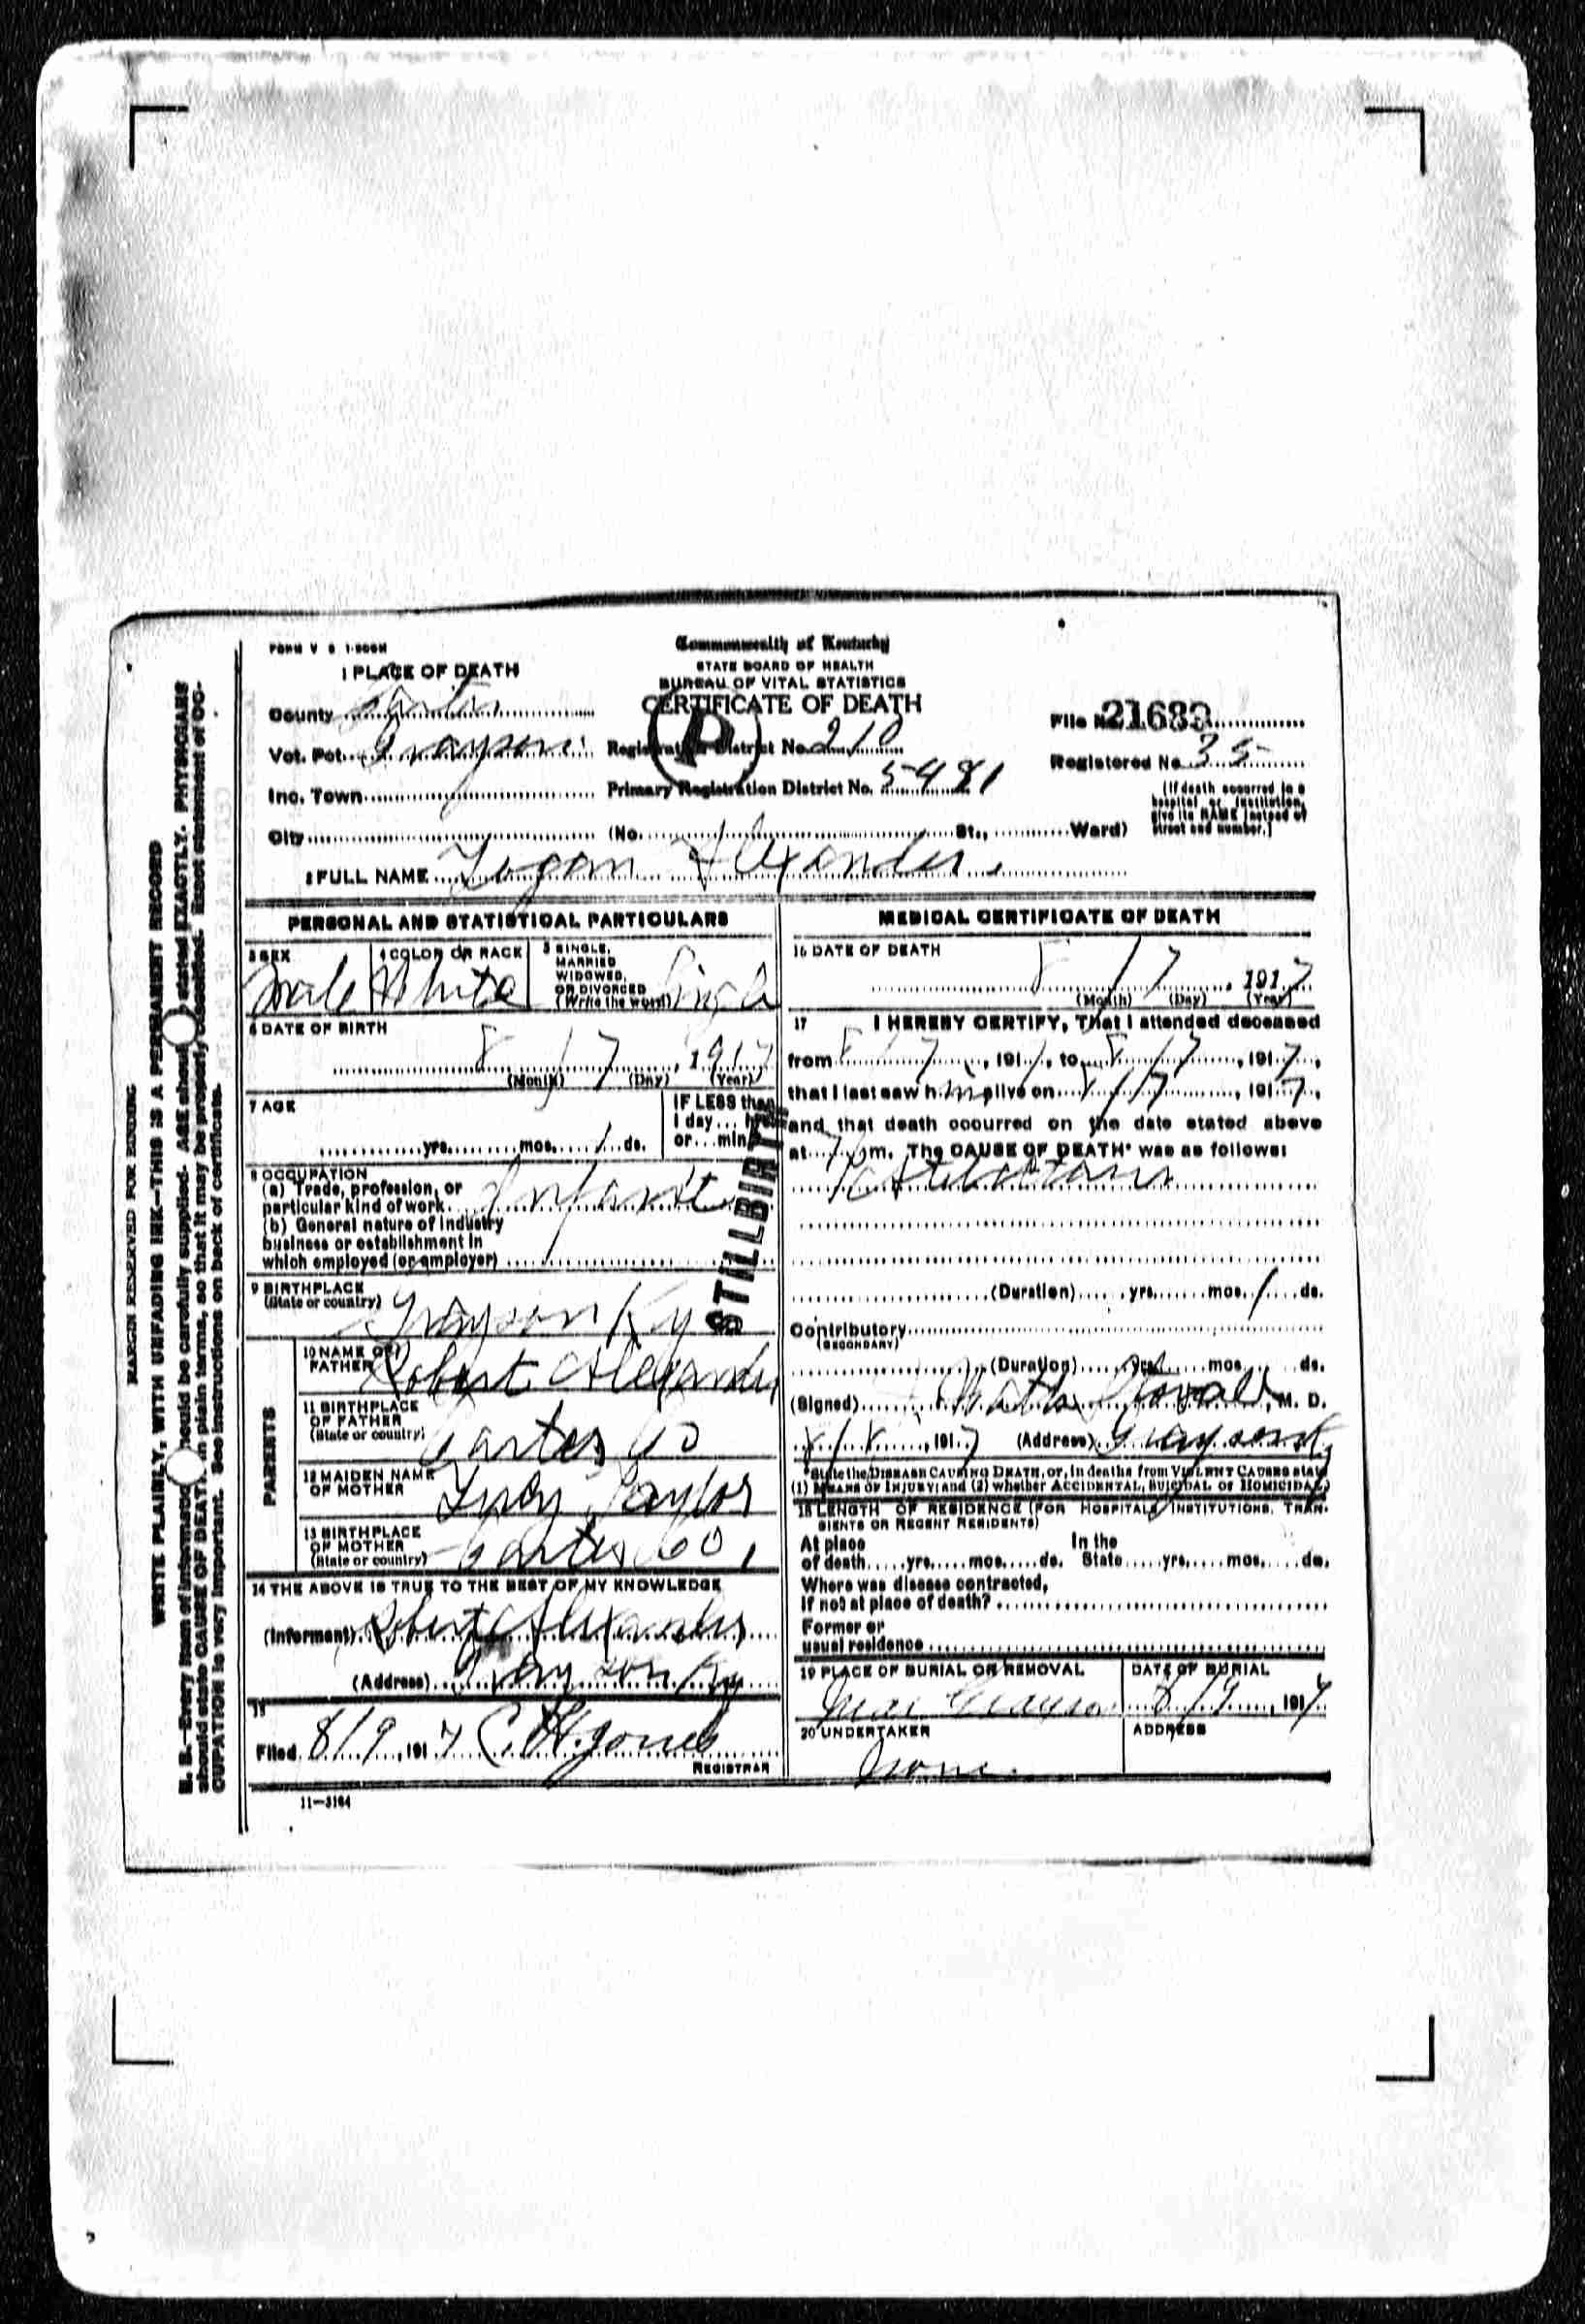 MARGIN RESERVED FOR BINDING
WRITE PLAINLY, WITH UNFADING INK—THIS IS A PERMANENT RECORD
N. B.—Every item of information should be carefully supplied. AGE should be stated EXACTLY. PHYSICIANS
should state CAUSE OF DEATH in plain terms, so that it may be properly classified. Exact statement of OC-
CUPATION is very important. See instructions on back of certificate.
FORM V S 1-
Commonwealth of Kentucky
STATE BOARD OF HEALTH
BUREAU OF VITAL STATISTICS
CERTIFICATE OF DEATH
P
1 PLACE OF DEATH
County Carter
Vot. Pct. Grayson
Inc. Town
City
Registration District No. 210
Primary Registration District No. 5481
(No. St., Ward)
File No. 21683
Registered No. 35
(If death occurred in a
hospital or institution,
give its NAME instead of
street and number.)
2 FULL NAME Logan Alexander
PERSONAL AND STATISTICAL PARTICULARS
3 SEX
Male
4 COLOR OR RACE
White
5 SINGLE,
MARRIED
WIDOWED,
OR DIVORCED
(Write the word) Single
6 DATE OF BIRTH
8 17, 1917
(Month) (Day) (Year)
7 AGE
yrs. mos. 1 ds.
IF LESS than
1 day... hrs
or...min
STILLBIRTH
8 OCCUPATION
(a) Trade, profession, or
particular kind of work Infant
(b) General nature of Industry
business or establishment in
which employed (or employer)
9 BIRTHPLACE
(State or country) Grayson Ky
PARENTS
10 NAME OF
FATHER Robert Alexander
11 BIRTHPLACE
OF FATHER
(State or country) Carter Co
12 MAIDEN NAME
OF MOTHER Taylor
13 BIRTHPLACE
OF MOTHER
(State or country) Carter Co.
14 THE ABOVE IS TRUE TO THE BEST OF MY KNOWLEDGE
(Informant) Robert Alexander
(Address) Grayson Ky
15
Filed 8/9, 1917 C. H. Jones
REGISTRAR
11—3164
MEDICAL CERTIFICATE OF DEATH
16 DATE OF DEATH
8 17, 1917
(Month) (Day) (Year)
17 I HEREBY CERTIFY, That I attended deceased
from 8/7, 191, to 8/7, 1917,
that I last saw him alive on 8/7, 1917,
and that death occurred on the date stated above
at 7 m. The CAUSE OF DEATH* was as follows:
(Duration) yrs. mos. 1 ds.
Contributory
(SECONDARY)
(Duration) yrs. mos. ds.
(Signed) Stovall, M. D.
8/8, 1917 (Address) Grayson
*State the DISEASE CAUSING DEATH, or, in deaths from VIOLENT CAUSES state
(1) MEANS OF INJURY; and (2) whether ACCIDENTAL, SUICIDAL or HOMICIDAL)
18 LENGTH OF RESIDENCE (FOR HOSPITALS, INSTITUTIONS, TRAN-
SIENTS OR RECENT RESIDENTS)
At place In the
of death yrs. mos. ds. State yrs. mos. ds.
Where was disease contracted,
If not at place of death?
Former or
usual residence
19 PLACE OF BURIAL OR REMOVAL
Near Grayson
DATE OF BURIAL
8/9, 1917
20 UNDERTAKER
None
ADDRESS